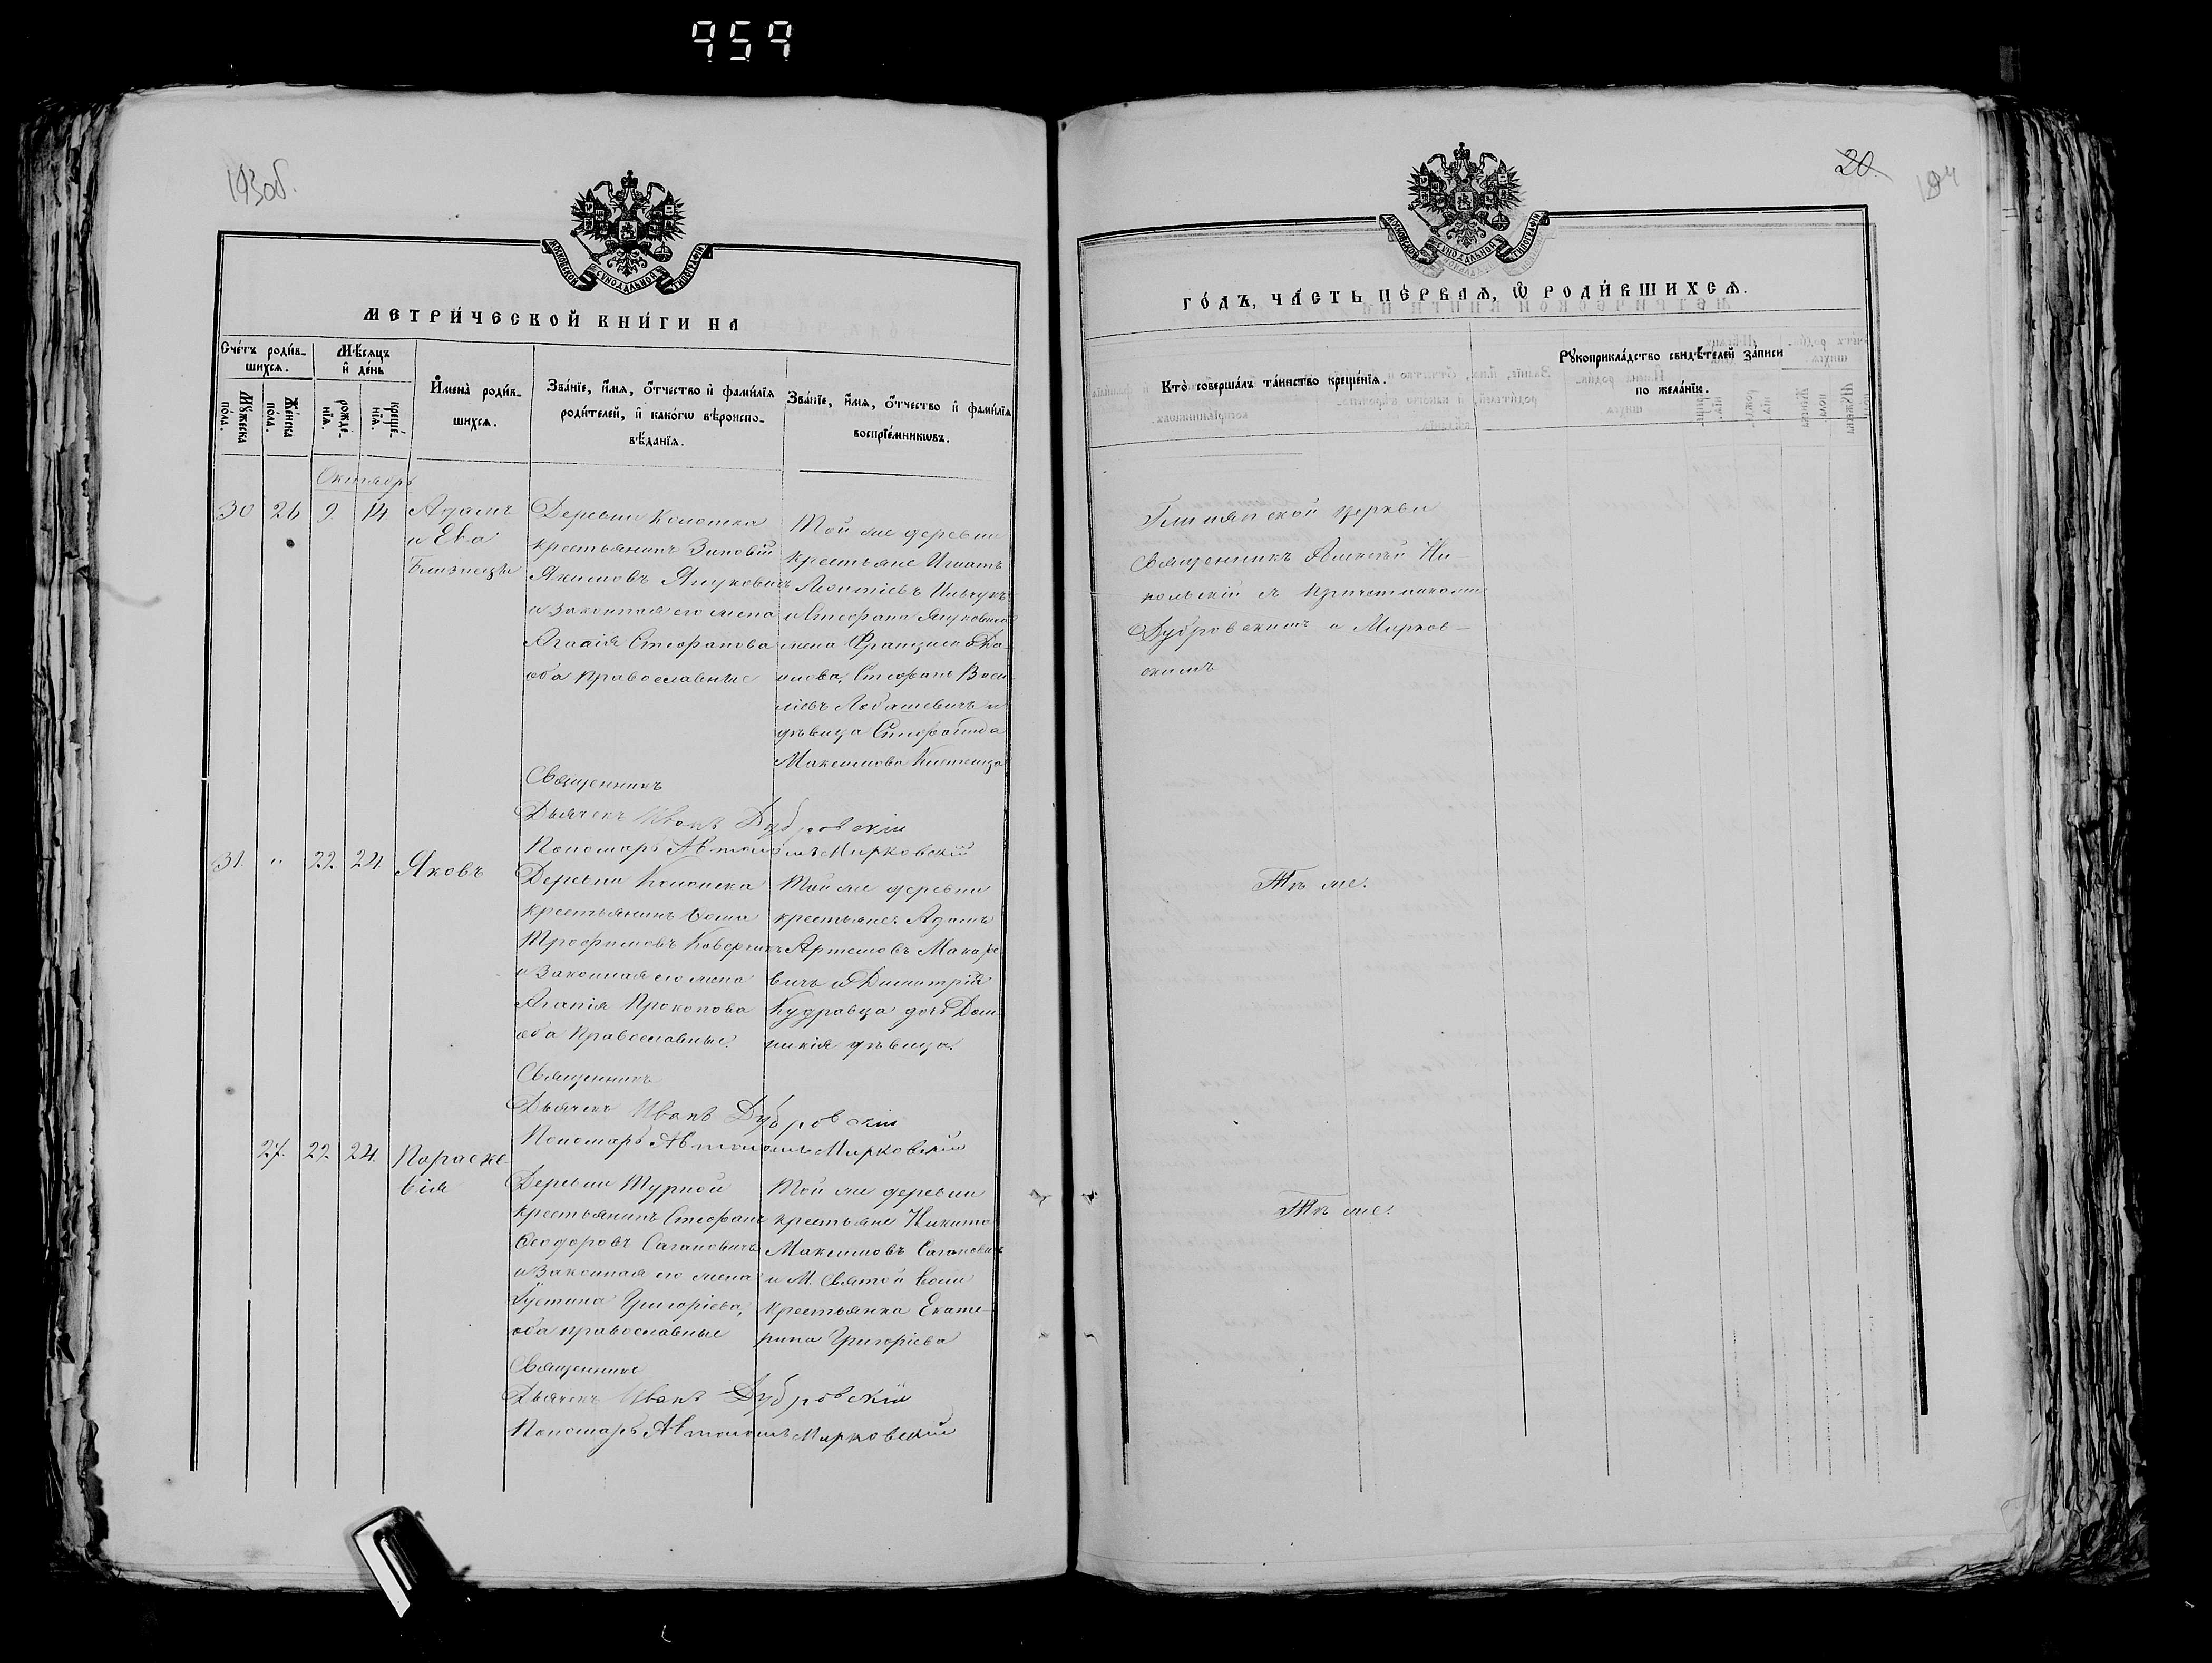 959
193об.
МОСКОВСКОЙ СѴНОДАЛЬНОЙ ТИПОГРАФІИ
МЕТРИ́ЧЕСКОЙ КНИ́ГИ НА
Сче́тъ роди́в-
шихсѧ.
Мѣ́сѧцъ
и҆ де́нь
Мꙋ́жеска
по́ла.
Же́нска
по́ла.
рожде́-
нїѧ.
креще́-
нїѧ.
И҆мена̀ роди́в-
шихсѧ.
Зва́нїе, и҆́мѧ, ѻ҆́тчество и҆ фами́лїѧ
роди́телей, и҆ како́гѡ вѣроиспо-
вѣ́данїѧ.
Зва́нїе, и҆́мѧ, ѻ҆́тчество и҆ фами́лїѧ
воспрїе́мникѡвъ.
Октябрь
30 26 9. 14. Адамъ
и Ева
Близнецы
Деревни Колонска
крестьянинъ Зиновій
Якимовъ Януковичъ
и законная его жена
Агафія Стефанова
оба православные
Той же деревни
крестьяне Игнатъ
Леонтіевъ Ильчукъ
и Стефана Януковича
жена Францишка
Стефанъ Васи-
ліевъ Лобашевичъ и
дѣвица Стефанида
Максимова
Священникъ
Дьячекъ Иванъ Дубровскій
Пономарь Автономъ Мирковскій
31. " 22 24. Яковъ
Деревни Колонска
крестьянинъ Ѳома
Трофимовъ Коверчикъ
и законная его жена
Агапія Прокопова
оба православные.
Той же деревни
крестьяне: Адамъ
Артемовъ Макаре-
вичъ и Димитрія
Кудравца дочь Дом-
никія дѣвица.
Священникъ
Дьячекъ Иванъ Дубровскій
Пономарь Автономъ Мирковскій
27. 22. 24. Параске-
вія
Деревни Турной
крестьянинъ Стефанъ
Ѳеодоровъ Сагановичъ
и законная его жена
Іустина Григоріева,
оба православные
Той же деревни
крестьяне Никита
Максимовъ Сагановичъ
и М. Святой Воли
крестьянка Екате-
рина Григоріева
Священникъ
Дьячекъ Иванъ Дубровскій
Пономарь Автономъ Мирковскій
20.
194
МОСКОВСКОЙ СѴНОДАЛЬНОЙ ТИПОГРАФІИ
ГО́ДЪ, ЧА́СТЬ ПЕ́РВАѦ, Ѽ РОДИ́ВШИХСѦ.
Кто̀ соверша́лъ та́инство креще́нїѧ.
Рꙋкоприкла́дство свидѣ́телей за́писи
по жела́нїю.
церкви
Священникъ Алексѣй Ни-
кольскій съ Причетниками
Дубровскимъ и Мирков-
скимъ
Тѣ же.
Тѣ же.